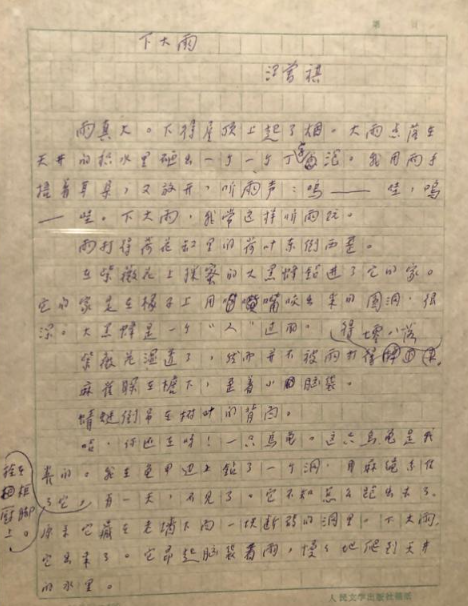 下大雨
汪曾祺
雨真大。下得屋顶上起了烟。大雨点落在
天井的积水里砸出一个一个丁字泡。我用两手
捂着耳朵,又放开,听雨声:呜——哇;呜
——哇。下大雨,我常这样听雨玩。
雨打得荷花缸里的荷叶东倒西歪。
在紫薇花上采蜜的大黑蜂钻进了它的家。
它的家是在椽子上用嘴咬出来的圆洞,很
深。大黑蜂是一个“人”过的。
紫薇花湿透了,然而并不被雨打得零落
麻雀躲在檐下,歪着小脑袋。
蜻蜓倒吊在树叶的背面。
哈,你还在呀!一只乌龟。这只乌龟是我
养的。我在龟甲边上钻了一个洞,用麻绳系住
了它,
拴在柜橱脚上。
有一天,不见了。它不知怎么跑出去了。
原来它藏在老墙下面一块断砖的洞里。下大雨,
它出来了。它昂起脑袋看雨,慢慢地爬到天井
的水里。
人民文学出版社稿纸